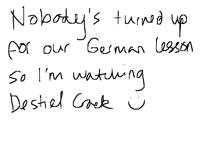 Nobody's turned up
for our German lesson
so I'm watching
Destiel Crack